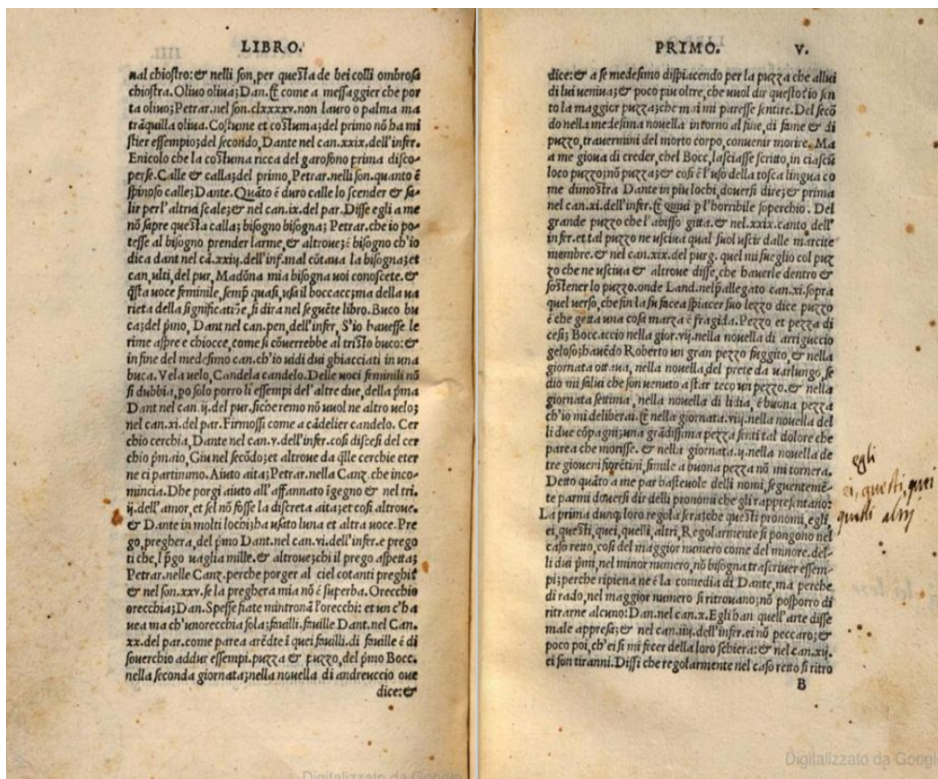 LIBRO.
nal chiostro:& nelli son,per questa de bei colli ombrosa
chiostra. Olivo oliva; Dan. E come a messaggier che por
ta olivo; Petrar. nel son.clxxxxv.non lauro o palma ma
trãquilla oliva. Costume et costuma;del primo nõ ha mi
stier essempio;del secondo, Dante nel can.xxix.dell'infer.
Enicolo che la costuma ricca del garofono prima disco-
perse. Calle & calla;del primo, Petrar.nelli son.quanto è
spinoso calle; Dante. Quãto è duro calle lo scender & sa-
lir per l'altrui scale;& nel can.ix.del par. Disse egli a me
nõ sapre questa calla; bisogno bisogna; Petrar.che io po-
tesse al bisogno prender larme,& altrove;è bisogno ch'io
dica dant nel cã.xxiij.dell'inf.mal cõtava la bisogna;et
can,ulti,del pur, Madõna mia bisogna voi conoscete.&
q̃sta voce feminile, semp̃ quasi,usa il boccacc;ma della va
rieta della significatiõe,si dira nel seguẽte libro. Buco bu
ca;del p̃mo, Dant nel can.pen,dell'infer, S'io havesse le
rime aspre e chiocce,come si cõverrebbe al tristo buco: &
in fine del medesimo can.ch'io vidi dui ghiacciati in una
buca. Vela velo, Candela candelo. Delle voci feminili nõ
si dubbia, po solo porro li essempi del'altre due, della p̃ma
Dant nel can.ij.del pur.siche remo nõ vuol ne altro velo;
nel can.xi.del par. Firmossi come a cãdelier candelo. Cer
chio cerchia, Dante nel can.v.dell'infer.cosi discesi del cer
chio p̃maio, Giu nel secõdo;et altrove da q̃lle cerchie eter
ne ci partimmo. Aiuto aita; Petrar.nella Canz.che inco-
mincia. Dhe porgi aiuto all'affannato ĩgegno & nel tri.
ij.dell'amor, et sel nõ fosse la discreta aita;et cosi altrove.
& Dante in molti lochi;ha usato luna et altra voce. Pre
go, preghera, del p̃mo Dant.nel can.vi.dell'infer.e prego
ti che, l'p̃go vaglia mille. & altrove;chi il prego aspetta;
Petrar.nelle Canz.perche porger al ciel cotanti preghi;
& nel son.xxv.se la preghera mia nõ è superba. Orecchio
orecchia; Dan. Spesse fiate mintronã l'orecchi: et un c'ha
vea ma ch'unorecchia sola; favilli.faville Dant.nel Can.
xx.del par.come parea arẽdte ĩ quei favilli.di faville è di
soverchio addur essempi.puzza & puzzo,del p̃mo Bocc.
nella seconda giornata;nella novella di andreuccio ove
dice:&
PRIMO. V.
dice:& a se medesimo dispiacendo per la puzza che allui
di lui veniva;& poco piu oltre,che vuol dir questo?io sen
to la maggior puzza;che mai mi paresse sentire. Del secõ
do nella medesima novella intorno al fine,di fame & di
puzzo,tra vermini del morto corpo, convenir morire. Ma
a me giova di creder, chel Bocc,lasciasse scritto,in ciascũ
loco puzzo;nõ puzza;& cosi è l'uso della tosca lingua co
me dimostra Dante in piu lochi,doversi dire;& prima
nel can.xi.dell'infer.E quivi p l'horribile soperchio. Del
grande puzzo che l'abisso gitta.& nel.xxix.canto dell'
infer.et tal puzzo ne usciva qual suol uscir dalle marcite
membre.& nel can.xix.del purg. quel mi sveglio col puz
zo che ne usciva & altrove disse,che haverle dentro &
sostener lo puzzo.onde Land.nel p̃allegato can.xi.sopra
quel verso,che fin la su facea spiacer suo lezzo dice puzzo
è che getta una cosa marza è fragida. Pezzo et pezza di
cesi; Bocc.accio nella gior.vij.nella novella di arriguccio
geloso; havẽdo Roberto un gran pezzo fuggito,& nella
giornata ottava, nella novella,del prete da varlungo, se
dio mi salvi che son venuto a star teco un pezzo.& nella
giornata settima, nella novella di lidia, è buona pezza
ch'io mi deliberai. E nella giornata.viij.nella novella del
li due cõpagni;una grãdissima pezza senti tal dolore che
parea che morisse. & nella giornata.ij.nella novella de
tre gioveni fiorẽtini,simile a buona pezza nõ mi tornera.
Detto quãto a me par bastevole delli nomi, seguentemẽ-
te parmi doversi dir delli pronomi che gli rappresentano:
La prima dunq; loro regola sera;che questi pronomi,egli,
ei, questi,quei,quelli,altri, Regolarmente si pongono nel
caso retto,cosi del maggior numero come del minore.del-
li dui p̃mi,nel minor numero,nõ bisogna trascriver essem-
pi;perche ripiena ne é la comedia di Dante,ma perche
di rado,nel maggior numero si ritrovano; nõ posporro di
ritrarne alcuno: Dan.nel can.x. Egli han quell'arte disse
male appresa;& nel can.iiij.dell'infer.ei nõ peccaro;&
poco poi,ch'ei si mi fecer della loro schiera:& nel can.xij.
ei son tiranni. Dissi che regolarmente nel caso retto si ritro
B
egli
ei, questi, quei
quelli altri
Digitalizzato da Google
Digitalizzato da Google